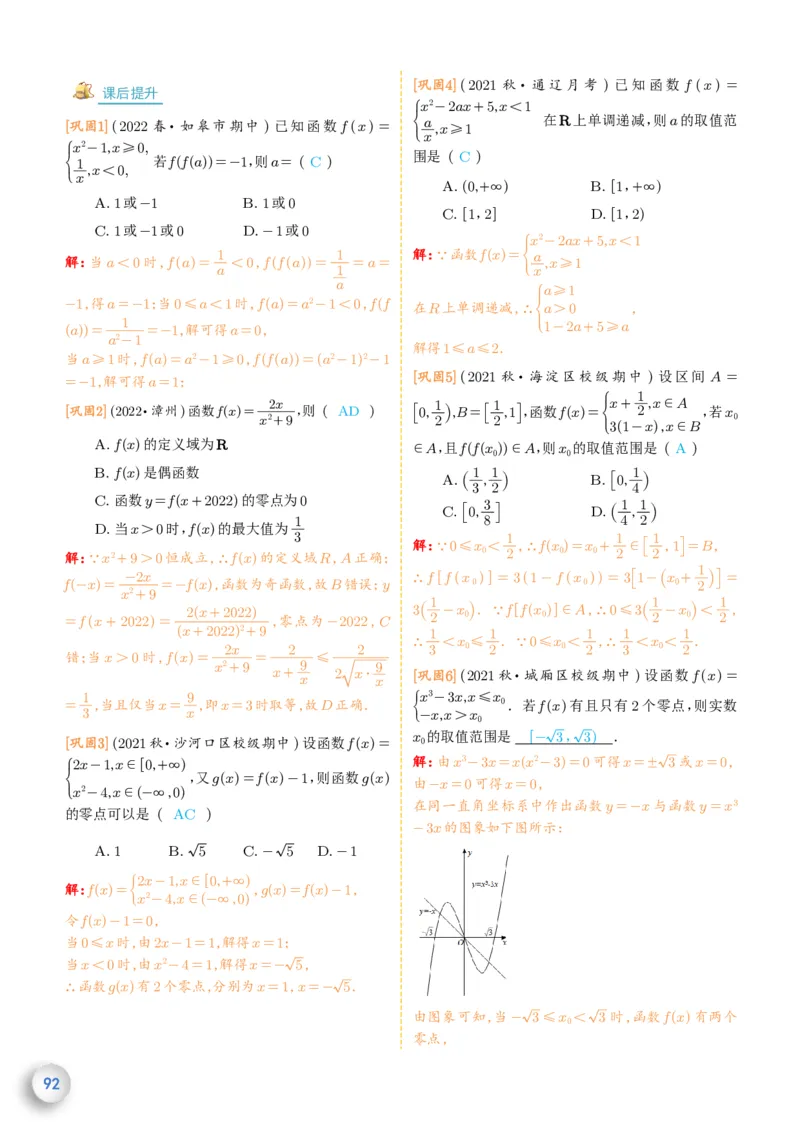 课后提升
[巩固1](2022 春·如皋市期中)已知函数f(x)=
{x²-1,x≥0,
1/x,x<0, 若f(f(a))=-1,则a=( C )
A. 1或-1 B. 1或0
C. 1或-1或0 D. -1或0
解:当a<0时,f(a)=1/a<0,f(f(a))=1/(1/a)=a=
-1,得a=-1;当0≤a<1时,f(a)=a²-1<0,f(f
(a))=1/(a²-1)=-1,解可得a=0,
当a≥1时,f(a)=a²-1≥0,f(f(a))=(a²-1)²-1
=-1,解可得a=1;
[巩固2](2022·漳州)函数f(x)=2x/(x²+9),则( AD )
A. f(x)的定义域为R
B. f(x)是偶函数
C. 函数y=f(x+2022)的零点为0
D. 当x>0时,f(x)的最大值为1/3
解:∵x²+9>0恒成立,∴f(x)的定义域R,A正确;
f(-x)=-2x/(x²+9)=-f(x),函数为奇函数,故B错误;y
=f(x+2022)=2(x+2022)/((x+2022)²+9),零点为-2022,C
错;当x>0时,f(x)=2x/(x²+9)=2/(x+9/x)≤2/(2√(x·9/x))
=1/3,当且仅当x=9/x,即x=3时取等,故D正确.
[巩固3](2021秋·沙河口区校级期中)设函数f(x)=
{2x-1,x∈[0,+∞)
x²-4,x∈(-∞,0) ,又g(x)=f(x)-1,则函数g(x)
的零点可以是( AC )
A. 1 B. √5 C. -√5 D. -1
解:f(x)={2x-1,x∈[0,+∞)
x²-4,x∈(-∞,0) ,g(x)=f(x)-1,
令f(x)-1=0,
当0≤x时,由2x-1=1,解得x=1;
当x<0时,由x²-4=1,解得x=-√5,
∴函数g(x)有2个零点,分别为x=1,x=-√5.
[巩固4](2021 秋·通辽月考)已知函数 f(x)=
{x²-2ax+5,x<1
a/x,x≥1 在R上单调递减,则a的取值范
围是( C )
A. (0,+∞) B. [1,+∞)
C. [1,2] D. [1,2)
解:∵函数f(x)={x²-2ax+5,x<1
a/x,x≥1
在R上单调递减,∴{a≥1
a>0
1-2a+5≥a ,
解得1≤a≤2.
[巩固5](2021 秋·海淀区校级期中)设区间 A=
[0,1/2),B=[1/2,1],函数f(x)={x+1/2,x∈A
3(1-x),x∈B ,若x₀
∈A,且f(f(x₀))∈A,则x₀的取值范围是( A )
A. (1/3,1/2) B. [0,1/4)
C. [0,3/8] D. (1/4,1/2)
解:∵0≤x₀<1/2,∴f(x₀)=x₀+1/2∈[1/2,1]=B,
∴f[f(x₀)]=3(1-f(x₀))=3[1-(x₀+1/2)]=
3(1/2-x₀). ∵f[f(x₀)]∈A,∴0≤3(1/2-x₀)<1/2,
∴1/3<x₀≤1/2. ∵0≤x₀<1/2,∴1/3<x₀<1/2.
[巩固6](2021秋·城厢区校级期中)设函数f(x)=
{x³-3x,x≤x₀
-x,x>x₀ . 若f(x)有且只有2个零点,则实数
x₀的取值范围是 [-√3,√3) .
解:由x³-3x=x(x²-3)=0可得x=±√3或x=0,
由-x=0可得x=0,
在同一直角坐标系中作出函数y=-x与函数y=x³
-3x的图象如下图所示:
y
y=x³-3x
y=-x
-√3 √3
O x
由图象可知,当-√3≤x₀<√3时,函数f(x)有两个
零点,
92